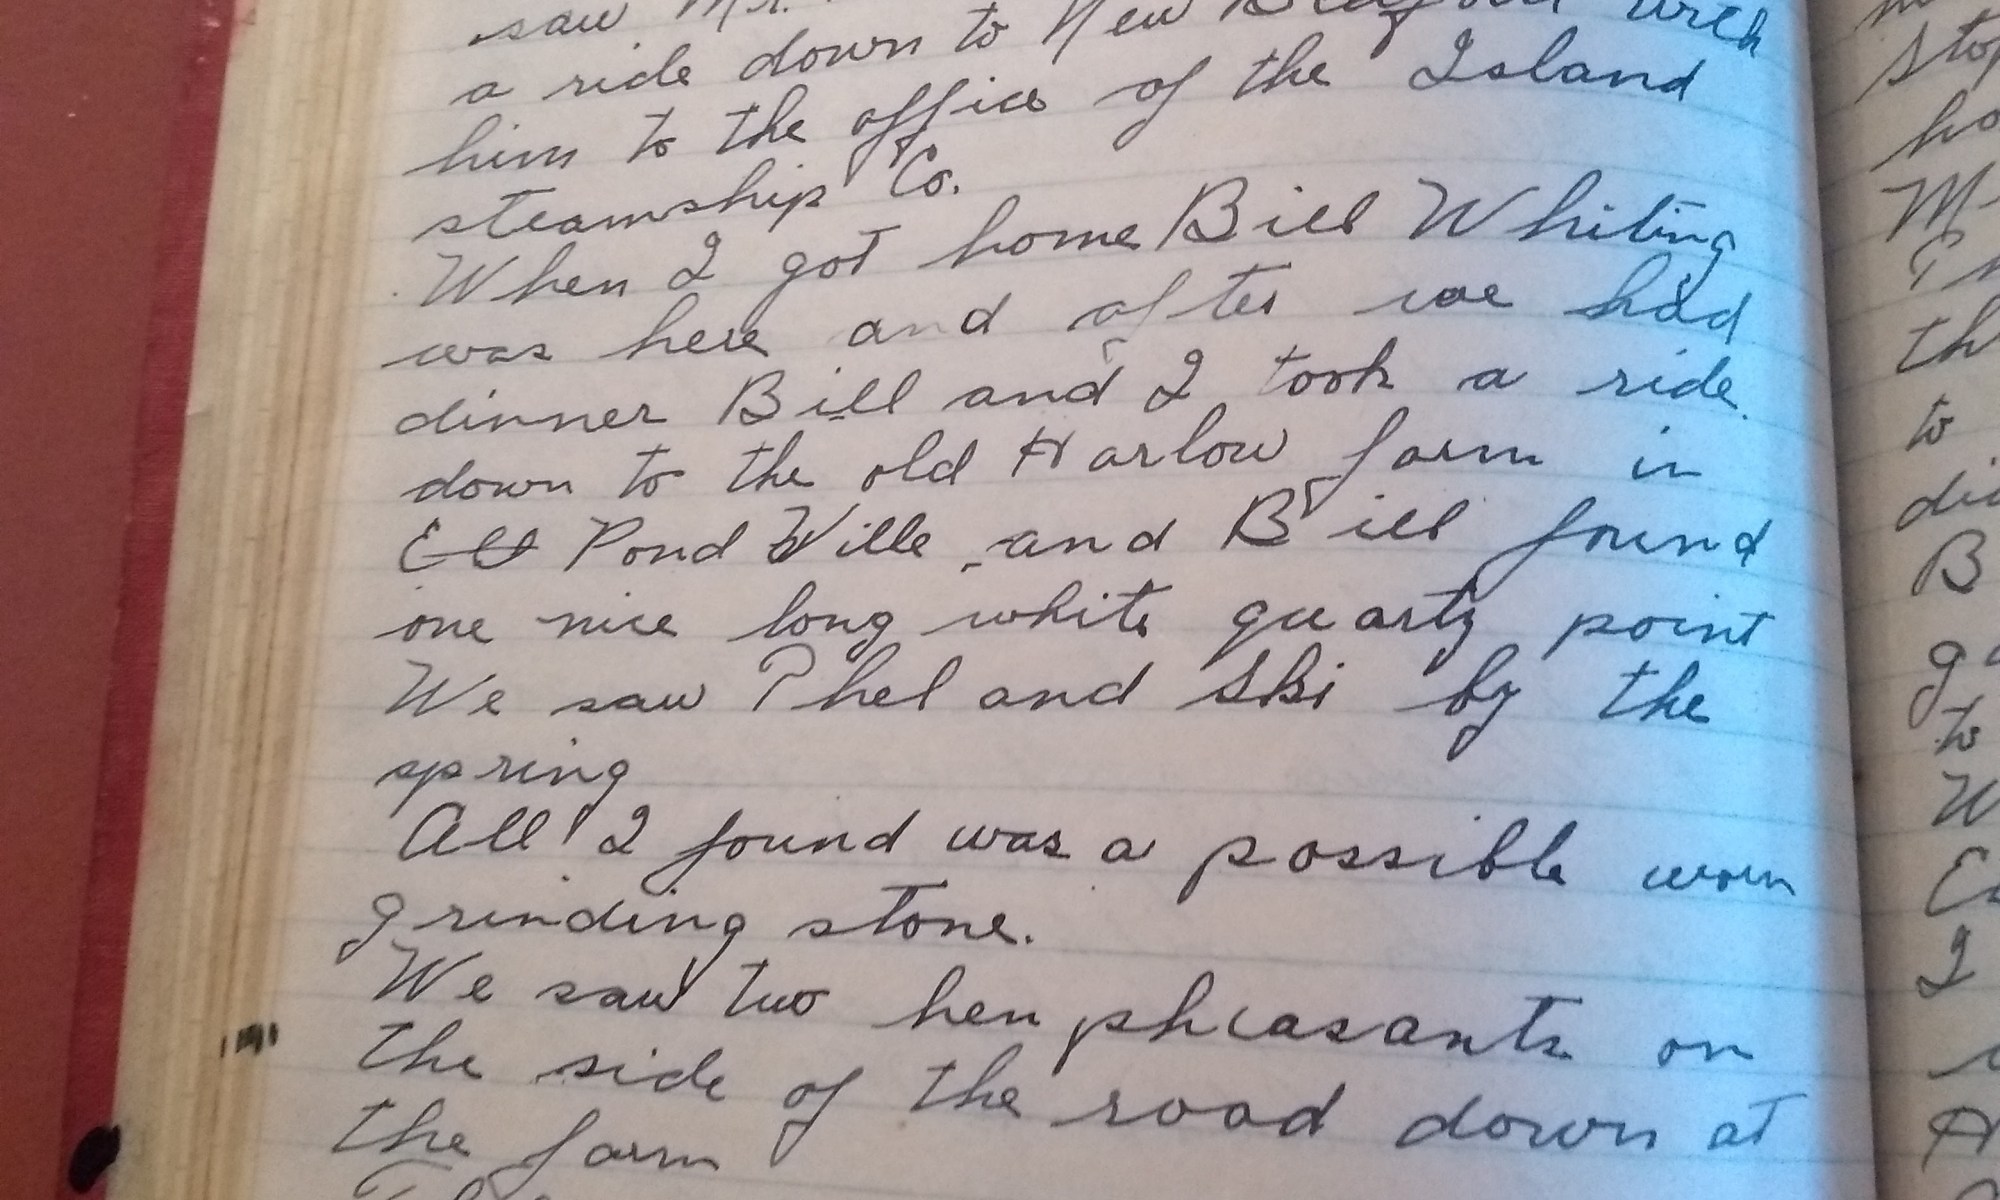 saw Mr.
a ride down to New Bedford with
him to the office of the Island
steamship Co.
When I got home Bill Whiting
was here and after we had
dinner Bill and I took a ride
down to the old Harlow farm in
Pond Ville and Bill found
one nice long white quartz point
We saw Phel and Ski by the
spring
All I found was a possible worn
grinding stone.
We saw two hen pheasants on
the side of the road down at
the farm
stop
ho
M
th
to
di
B
g
to
W
E
I